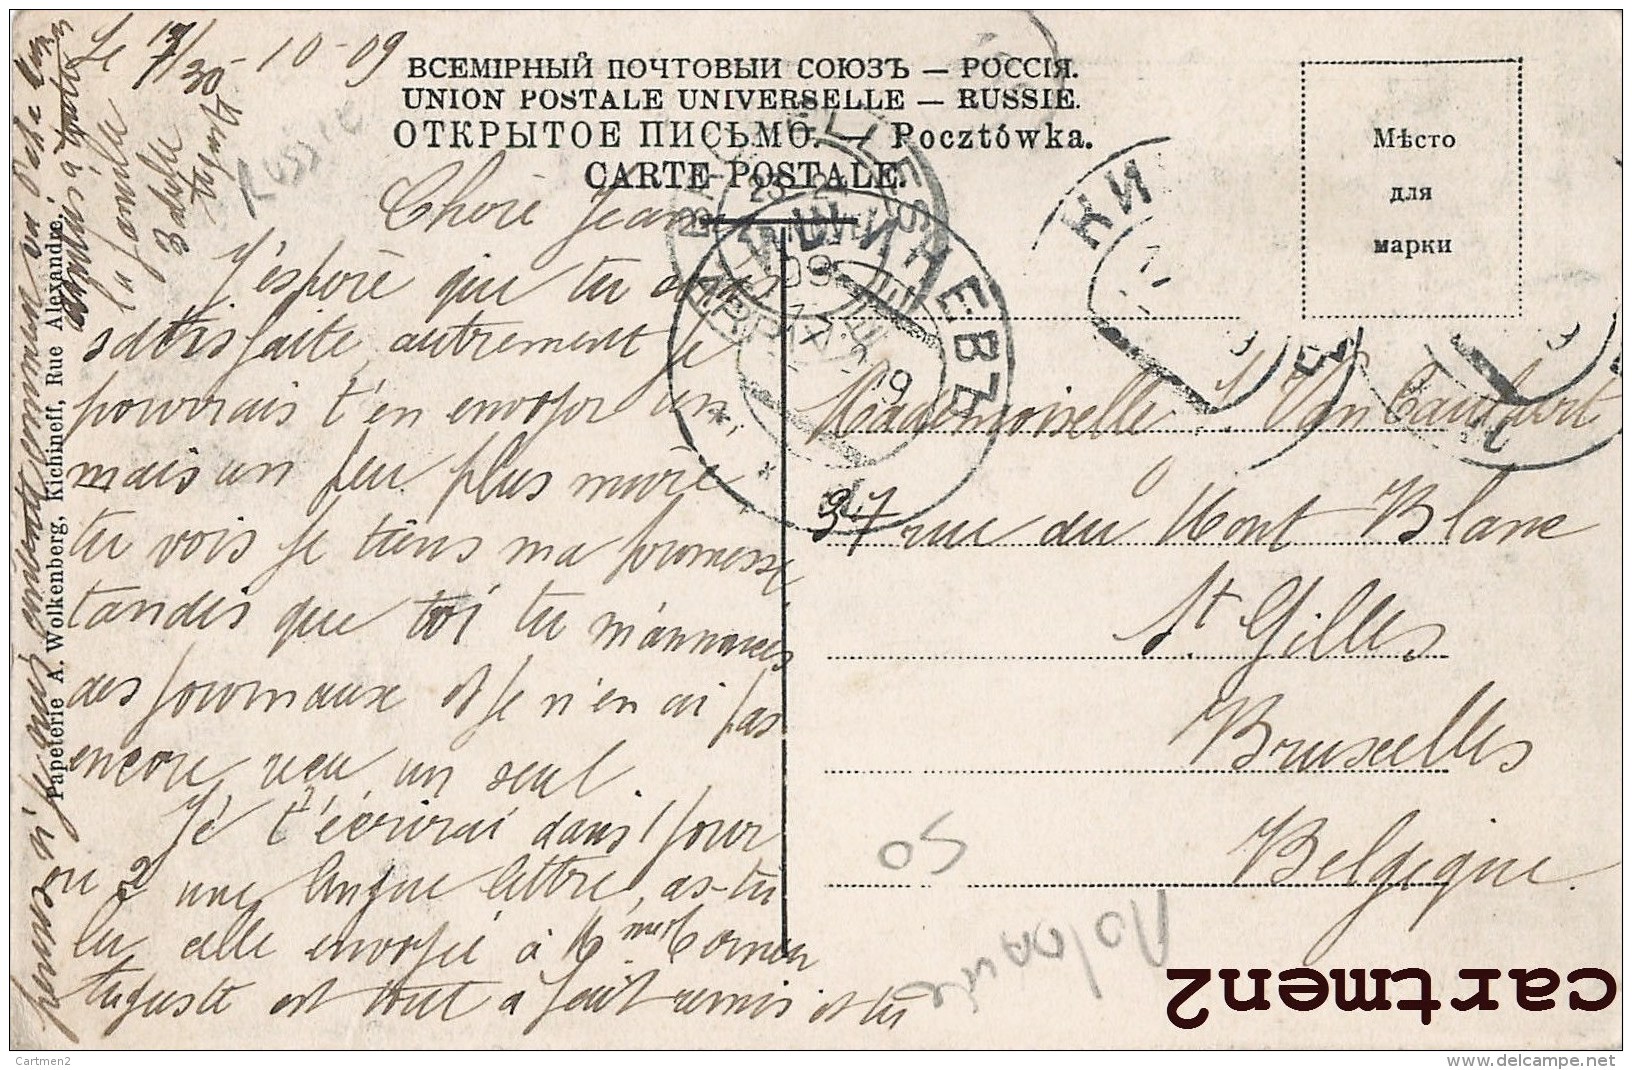 Le 17/30-10-09
ВСЕМІРНЫЙ ПОЧТОВЫЙ СОЮЗЪ — РОССІЯ.
UNION POSTALE UNIVERSELLE — RUSSIE.
ОТКРЫТОЕ ПИСЬМО. — Pocztówka.
CARTE POSTALE.
Мѣсто
для
марки
Russie
Chère Jeanne
J'espère que tu
satisfaite autrement je
pourrais t'en envoyer un
mais un peu plus
tu vois je tiens ma promesse
tandis que toi tu m'annonces
des journaux et je n'en ai pas
encore reçu un seul.
Je t'écrirai dans 1 jour
ou 2 une longue lettre, as-tu
lu celle envoyée à
Auguste est tout à fait remis et tu
la famille
Papeterie A. Wolkenberg, Kichineff, Rue Alexandre.
КИШИНЕВЪ
КИ
BRUXELLES
09
Mademoiselle J. Van
37 rue du Mont Blanc
St. Gilles
Bruxelles
Belgique.
50
Pologne
cartmen2
Cartmen2
www.delcampe.net